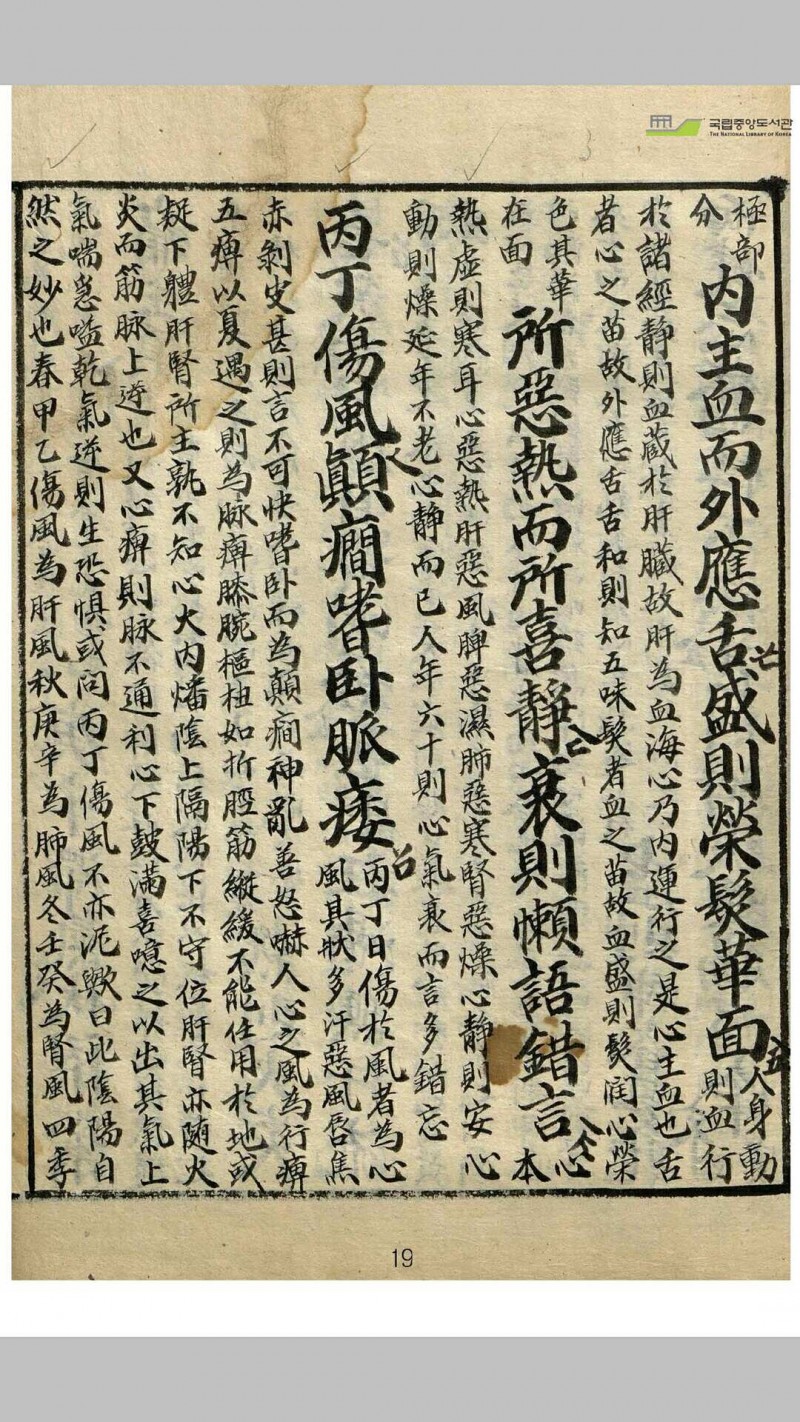 국립중앙도서관
THE NATIONAL LIBRARY OF KOREA
極部
分
内主血而外應舌盛則榮髮華面
人身動
則血行
於諸經靜則血藏於肝臟故肝為血海心乃内運行之是心主血也舌
者心之苗故外應舌舌和則知五味髮者血之苗故血盛則髮润心榮
色其華
在面
所惡熱而所喜静衰則懶語錯言
心
本
熱虚則寒耳心惡熱肝惡風脾惡濕肺惡寒腎惡燥心靜則安心
動則燥延年不老心静而已人年六十則心氣衰而言多錯忘
丙丁傷風顛癎嗜卧脈痿
丙丁日傷於風者為心
風其狀多汗惡風唇焦
赤剝皮甚則言不可快嗜卧而為顛癎神亂善怒嚇人心之風為行痺
五痺以夏遇之則為脉痺膝腕樞杻如折脛筋縱緩不能任用於地或
疑下體肝腎所主孰不知心火内燔陰上隔陽下不守位肝腎亦随火
炎而筋脉上逆也又心痺則脉不通利心下鼓满喜噫之以出其氣上
氣喘急嗌乾氣逆則生恐惧或问丙丁傷風不亦泥歟曰此陰陽自
然之妙也春甲乙傷風為肝風秋庚辛為肺風冬壬癸為腎風四季
19